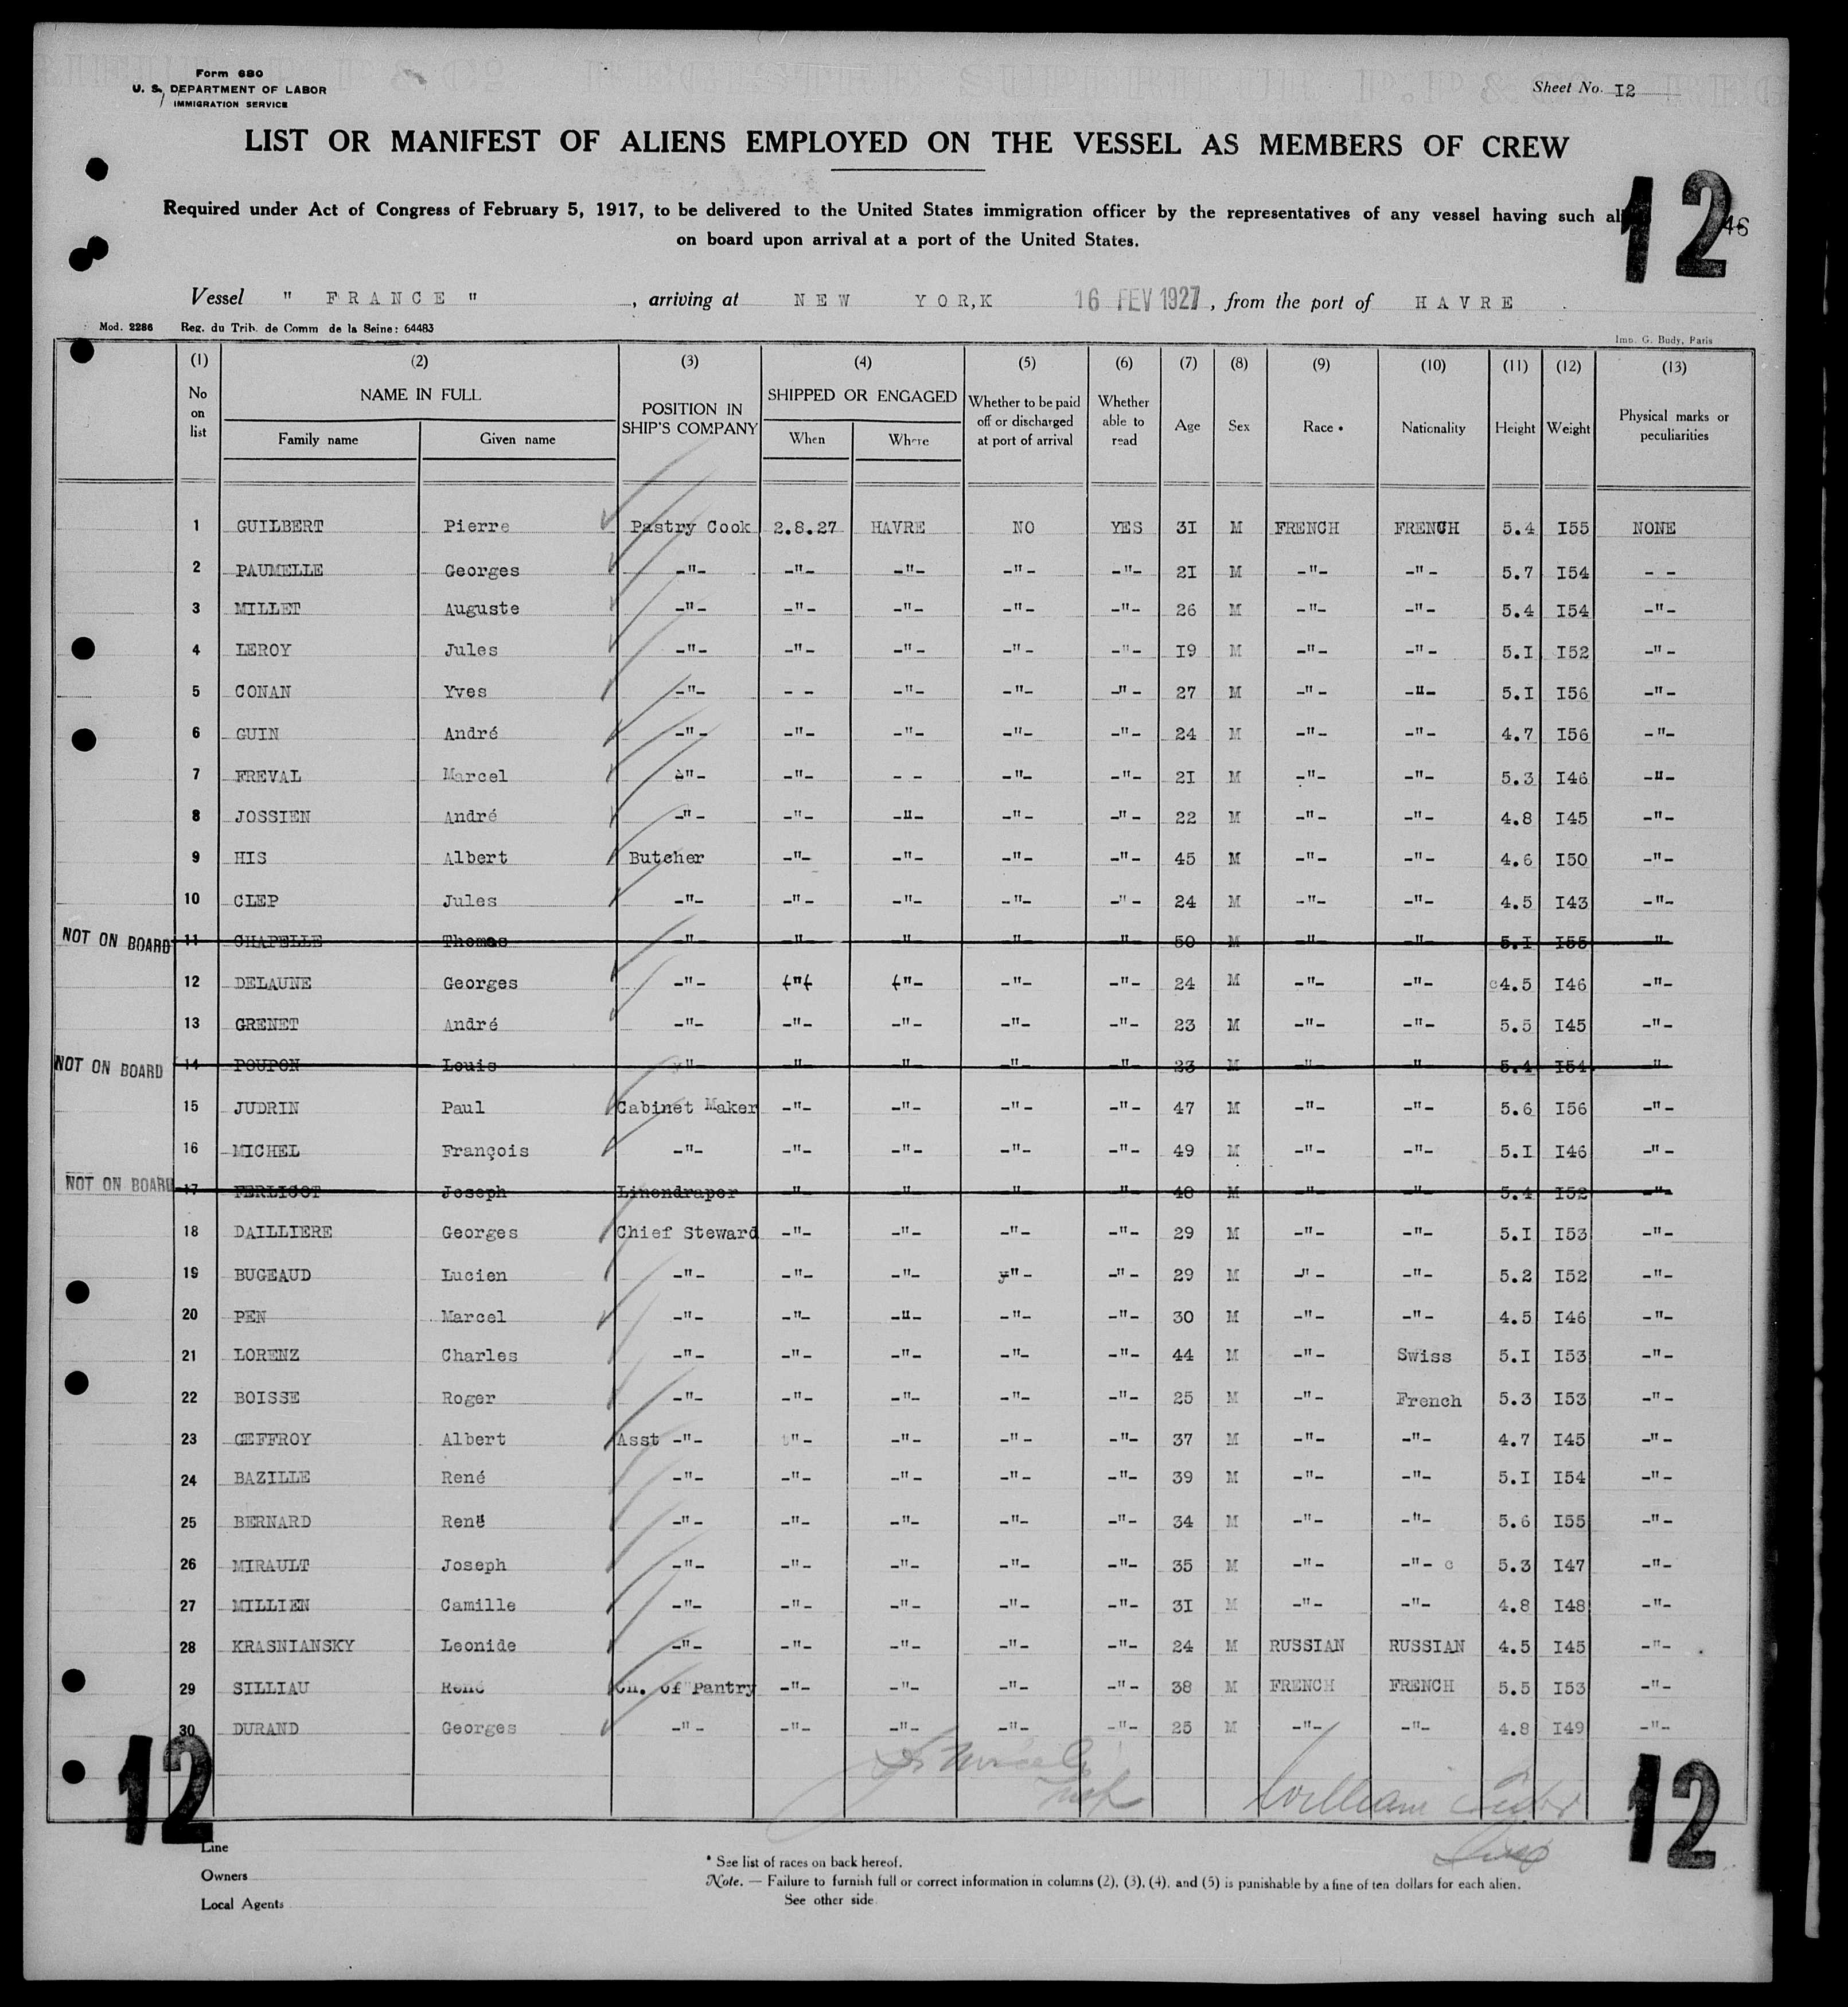 Form 680
U. S. DEPARTMENT OF LABOR
IMMIGRATION SERVICE
Sheet No. I2
LIST OR MANIFEST OF ALIENS EMPLOYED ON THE VESSEL AS MEMBERS OF CREW
12
Required under Act of Congress of February 5, 1917, to be delivered to the United States immigration officer by the representatives of any vessel having such al
46
on board upon arrival at a port of the United States.
Vessel " FRANCE " , arriving at NEW YOR,K 16 FEV 1927 , from the port of HAVRE .
Mod. 2286 Reg. du Trib. de Comm de la Seine: 64483
Imp. G. Budy, Paris
(1) (2) (3) (4) (5) (6) (7) (8) (9) (10) (11) (12) (13)
No on list NAME IN FULL Family name Given name POSITION IN SHIP'S COMPANY SHIPPED OR ENGAGED When Where Whether to be paid off or discharged at port of arrival Whether able to read Age Sex Race * Nationality Height Weight Physical marks or peculiarities
1 GUILBERT Pierre Pastry Cook 2.8.27 HAVRE NO YES 3I M FRENCH FRENCH 5.4 I55 NONE
2 PAUMELLE Georges -"- -"- -"- -"- -"- 2I M -"- -"- 5.7 I54 - -
3 MILLET Auguste -"- -"- -"- -"- -"- 26 M -"- -"- 5.4 I54 -"-
4 LEROY Jules -"- -"- -"- -"- -"- I9 M -"- -"- 5.I I52 -"-
5 CONAN Yves -"- - - -"- -"- -"- 27 M -"- -"- 5.I I56 -"-
6 GUIN André -"- -"- -"- -"- -"- 24 M -"- -"- 4.7 I56 -"-
7 FREVAL Marcel -"- -"- - - -"- -"- 2I M -"- -"- 5.3 I46 -"-
8 JOSSIEN André -"- -"- -"- -"- -"- 22 M -"- -"- 4.8 I45 -"-
9 HIS Albert Butcher -"- -"- -"- -"- 45 M -"- -"- 4.6 I50 -"-
10 CLEP Jules -"- -"- -"- -"- -"- 24 M -"- -"- 4.5 I43 -"-
NOT ON BOARD 11 CHAPELLE Thomas -"- -"- -"- -"- -"- 50 M -"- -"- 5.I I55 -"-
12 DELAUNE Georges -"- -"- -"- -"- -"- 24 M -"- -"- 4.5 I46 -"-
13 GRENET André -"- -"- -"- -"- -"- 23 M -"- -"- 5.5 I45 -"-
NOT ON BOARD 14 POUPON Louis -"- -"- -"- -"- -"- 23 M -"- -"- 5.4 I54 -"-
15 JUDRIN Paul Cabinet Maker -"- -"- -"- -"- 47 M -"- -"- 5.6 I56 -"-
16 MICHEL François -"- -"- -"- -"- -"- 49 M -"- -"- 5.I I46 -"-
NOT ON BOARD 17 FERLICOT Joseph Linendraper -"- -"- -"- -"- 48 M -"- -"- 5.4 I52 -"-
18 DAILLIERE Georges Chief Steward -"- -"- -"- -"- 29 M -"- -"- 5.I I53 -"-
19 BUGEAUD Lucien -"- -"- -"- -"- -"- 29 M -"- -"- 5.2 I52 -"-
20 PEN Marcel -"- -"- -"- -"- -"- 30 M -"- -"- 4.5 I46 -"-
21 LORENZ Charles -"- -"- -"- -"- -"- 44 M -"- Swiss 5.I I53 -"-
22 BOISSE Roger -"- -"- -"- -"- -"- 25 M -"- French 5.3 I53 -"-
23 GEFFROY Albert Asst -"- -"- -"- -"- -"- 37 M -"- -"- 4.7 I45 -"-
24 BAZILLE René -"- -"- -"- -"- -"- 39 M -"- -"- 5.I I54 -"-
25 BERNARD René -"- -"- -"- -"- -"- 34 M -"- -"- 5.6 I55 -"-
26 MIRAULT Joseph -"- -"- -"- -"- -"- 35 M -"- -"- c 5.3 I47 -"-
27 MILLIEN Camille -"- -"- -"- -"- -"- 3I M -"- -"- 4.8 I48 -"-
28 KRASNIANSKY Leonide -"- -"- -"- -"- -"- 24 M RUSSIAN RUSSIAN 4.5 I45 -"-
29 SILLIAU René Ch. of Pantry -"- -"- -"- -"- 38 M FRENCH FRENCH 5.5 I53 -"-
30 DURAND Georges -"- -"- -"- -"- -"- 25 M -"- -"- 4.8 I49 -"-
William
12
12
Line
Owners
Local Agents
* See list of races on back hereof.
Note. — Failure to furnish full or correct information in columns (2), (3), (4), and (5) is punishable by a fine of ten dollars for each alien.
See other side.